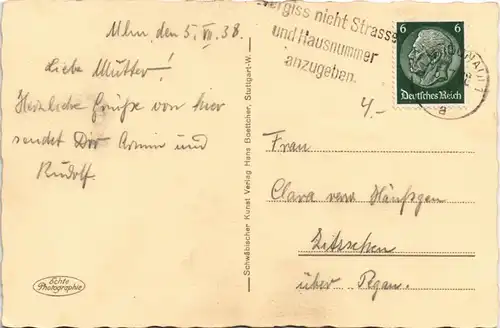 Ulm, den 5. VII. 38.
Liebe Mutter!
Herzliche Grüße von hier
sendet Dir Armin und
Rudolf.
Echte
Photographie
Schwäbischer Kunst Verlag Hans Boettcher, Stuttgart-W.
Vergiss nicht Strasse
und Hausnummer
anzugeben.
6 6
Deutsches Reich
a
4.-
Frau
Clara verw.
Zitzschen
über Pegau.